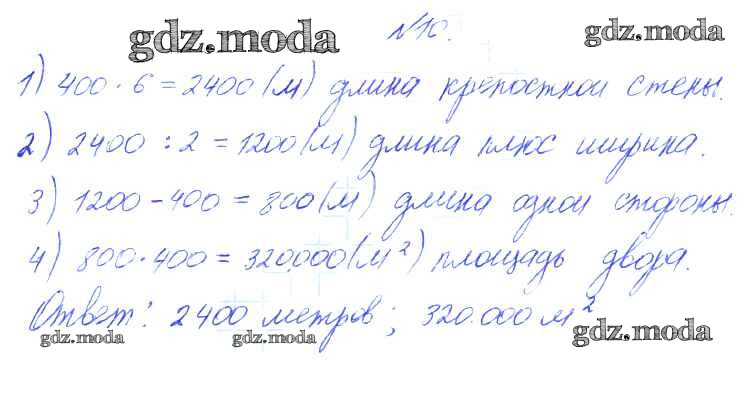 gdz.moda №10. gdz.moda
1) 400 · 6 = 2400 (м) длина крепостной стены.
2) 2400 : 2 = 1200 (м) длина плюс ширина.
3) 1200 - 400 = 800 (м) длина одной стороны.
4) 800 · 400 = 320.000 (м²) площадь двора.
Ответ: 2400 метров; 320.000 м²
gdz.moda gdz.moda gdz.moda